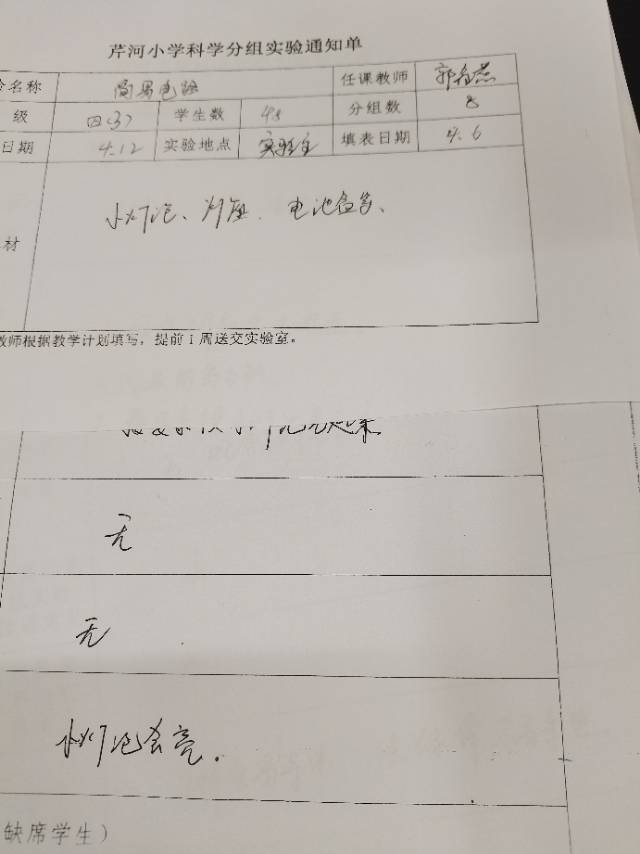 芹河小学科学分组实验通知单
名称 简易电路 任课教师 郭
级 四(3) 学生数 48 分组数 8
日期 4.12 实验地点 实验室 填表日期 4.6
材 小灯泡、灯座、电池盒等、
教师根据教学计划填写，提前1周送交实验室。
无
无
小灯泡会亮.
缺席学生）